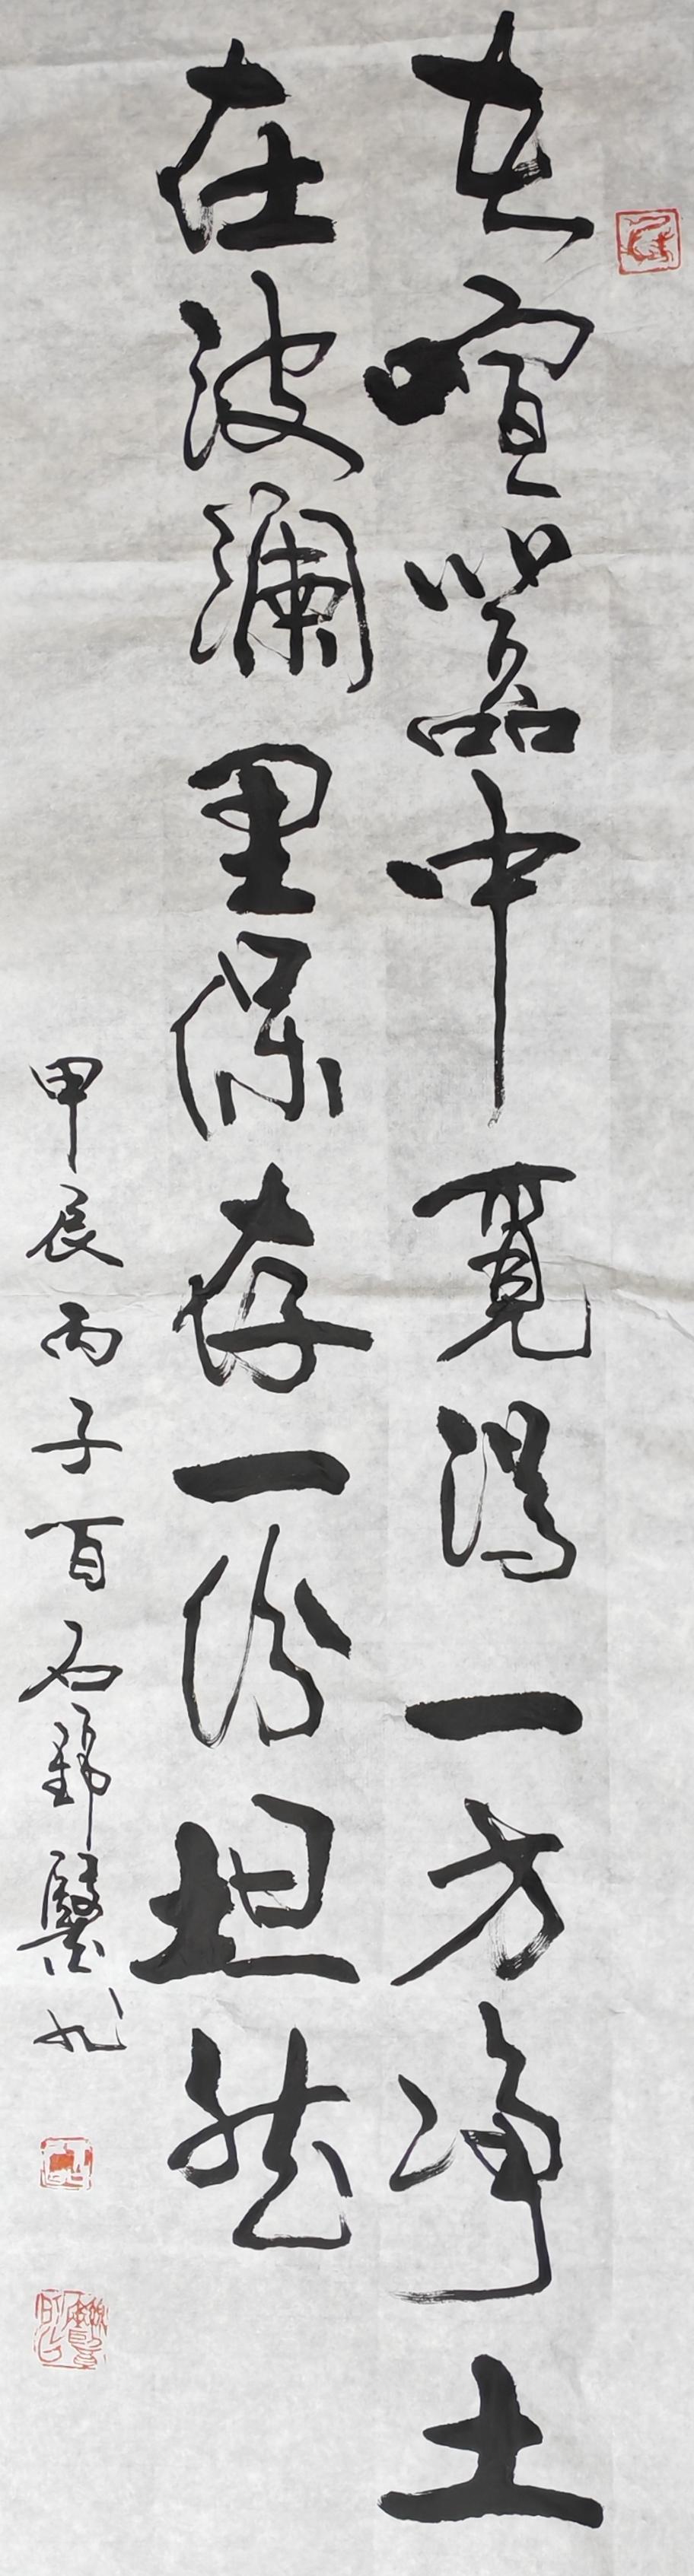 在喧嚣中覓得一方净土
在波澜里保存一份坦然
甲辰丙子百石